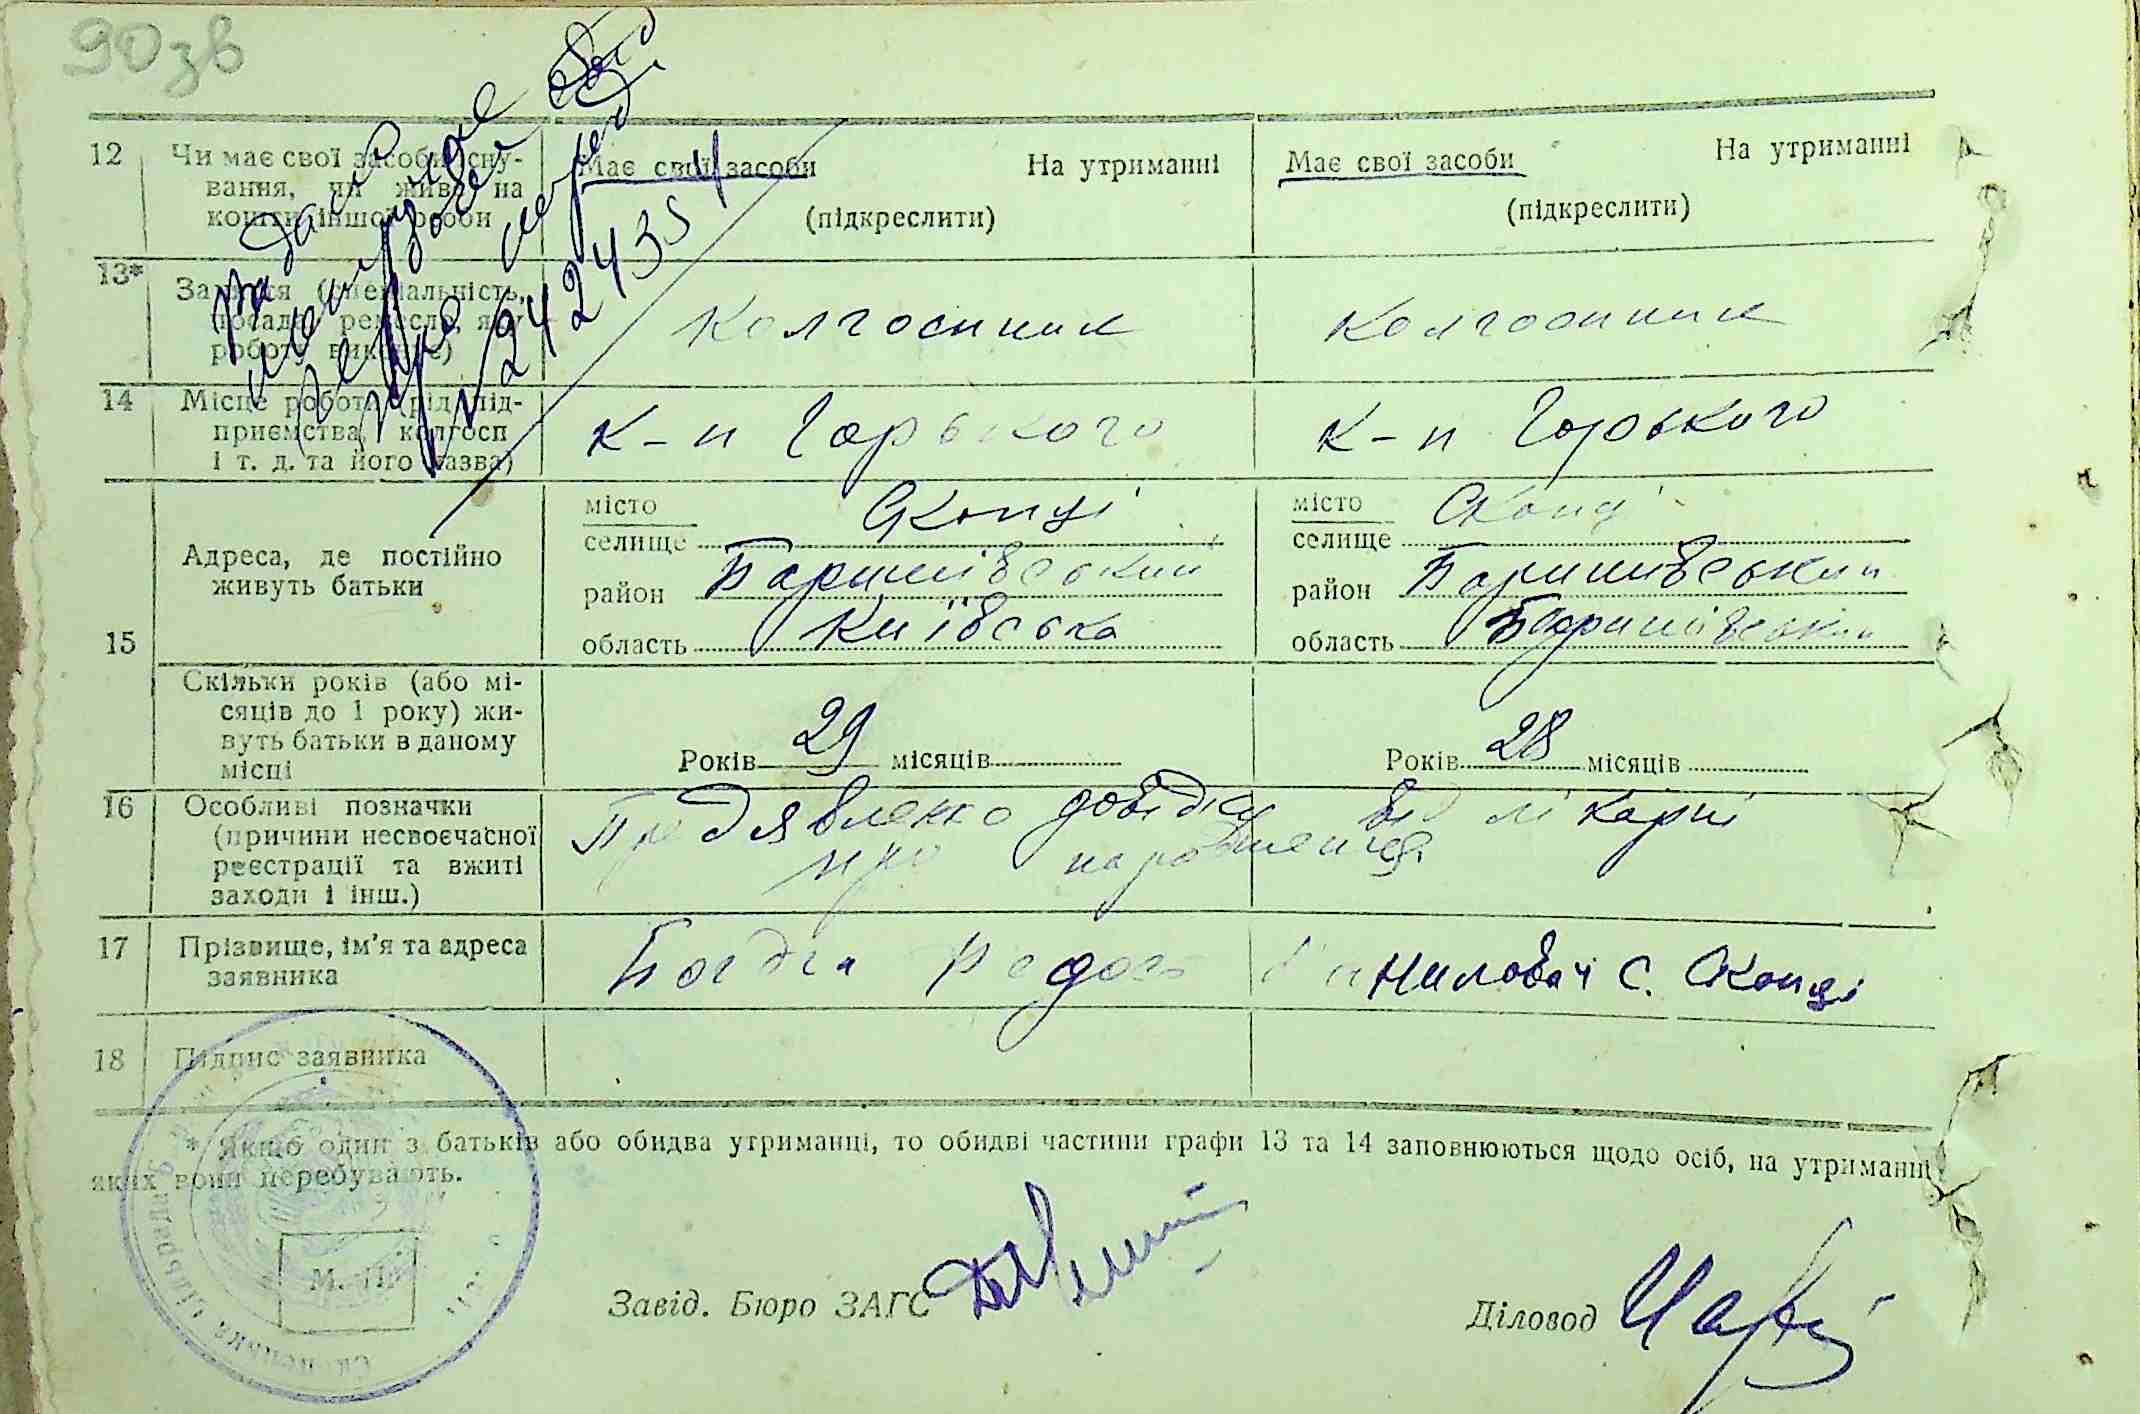 90зв
12 Чи має свої засоби існу-
вання, чи живе на
кошти іншої особи
Має свої засоби На утриманні
(підкреслити)
Має свої засоби На утриманні
(підкреслити)
13* Заняття (спеціальність,
посада, ремесло, яку
роботу виконує)
Колгоспник
Колгоспник
14 Місце роботи (рід під-
приємства, колгосп
і т. д. та його назва)
К-п Горького
К-п Горького
15 Адреса, де постійно
живуть батьки
місто
селище Скопці
район Баришівський
область Київська
місто
селище Скопці
район Баришивський
область Баришівський
Скільки років (або мі-
сяців до 1 року) жи-
вуть батьки в даному
місці
Років 29 місяців
Років 28 місяців
16 Особливі позначки
(причини несвоєчасної
реєстрації та вжиті
заходи і інш.)
Предявлено довідку від лікарні
про народження
17 Прізвище, ім'я та адреса
заявника
с. Скопці
18 Підпис заявника
* Якщо один з батьків або обидва утриманці, то обидві частини графи 13 та 14 заповнюються щодо осіб, на утриманні
яких вони перебувають.
М. П.
Завід. Бюро ЗАГС
Діловод